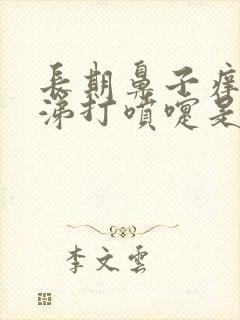 長期鼻子痒
涕打噴嚏是
李文雲